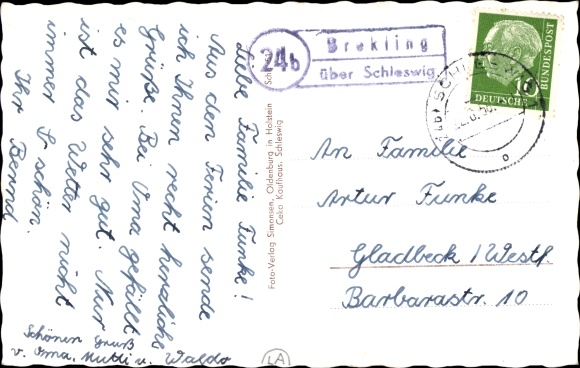 Liebe Familie Funke!
Aus den Ferien sende
ich Ihnen recht herzliche
Grüße. Bei Oma gefällt
es mir sehr gut. Nur
ist das Wetter nicht
immer schön.
Ihr Bernd
Schönen Gruß
v. Oma, Mutti u. Waldo
24b
Brekling
über Schleswig
Foto-Verlag Simonsen, Oldenburg in Holstein
Ceka Kaufhaus, Schleswig
SCHLESW
DEUTSCHE
BUNDESPOST
10
An Familie
Artur Funke
Gladbeck / Westf.
Barbarastr. 10
LA